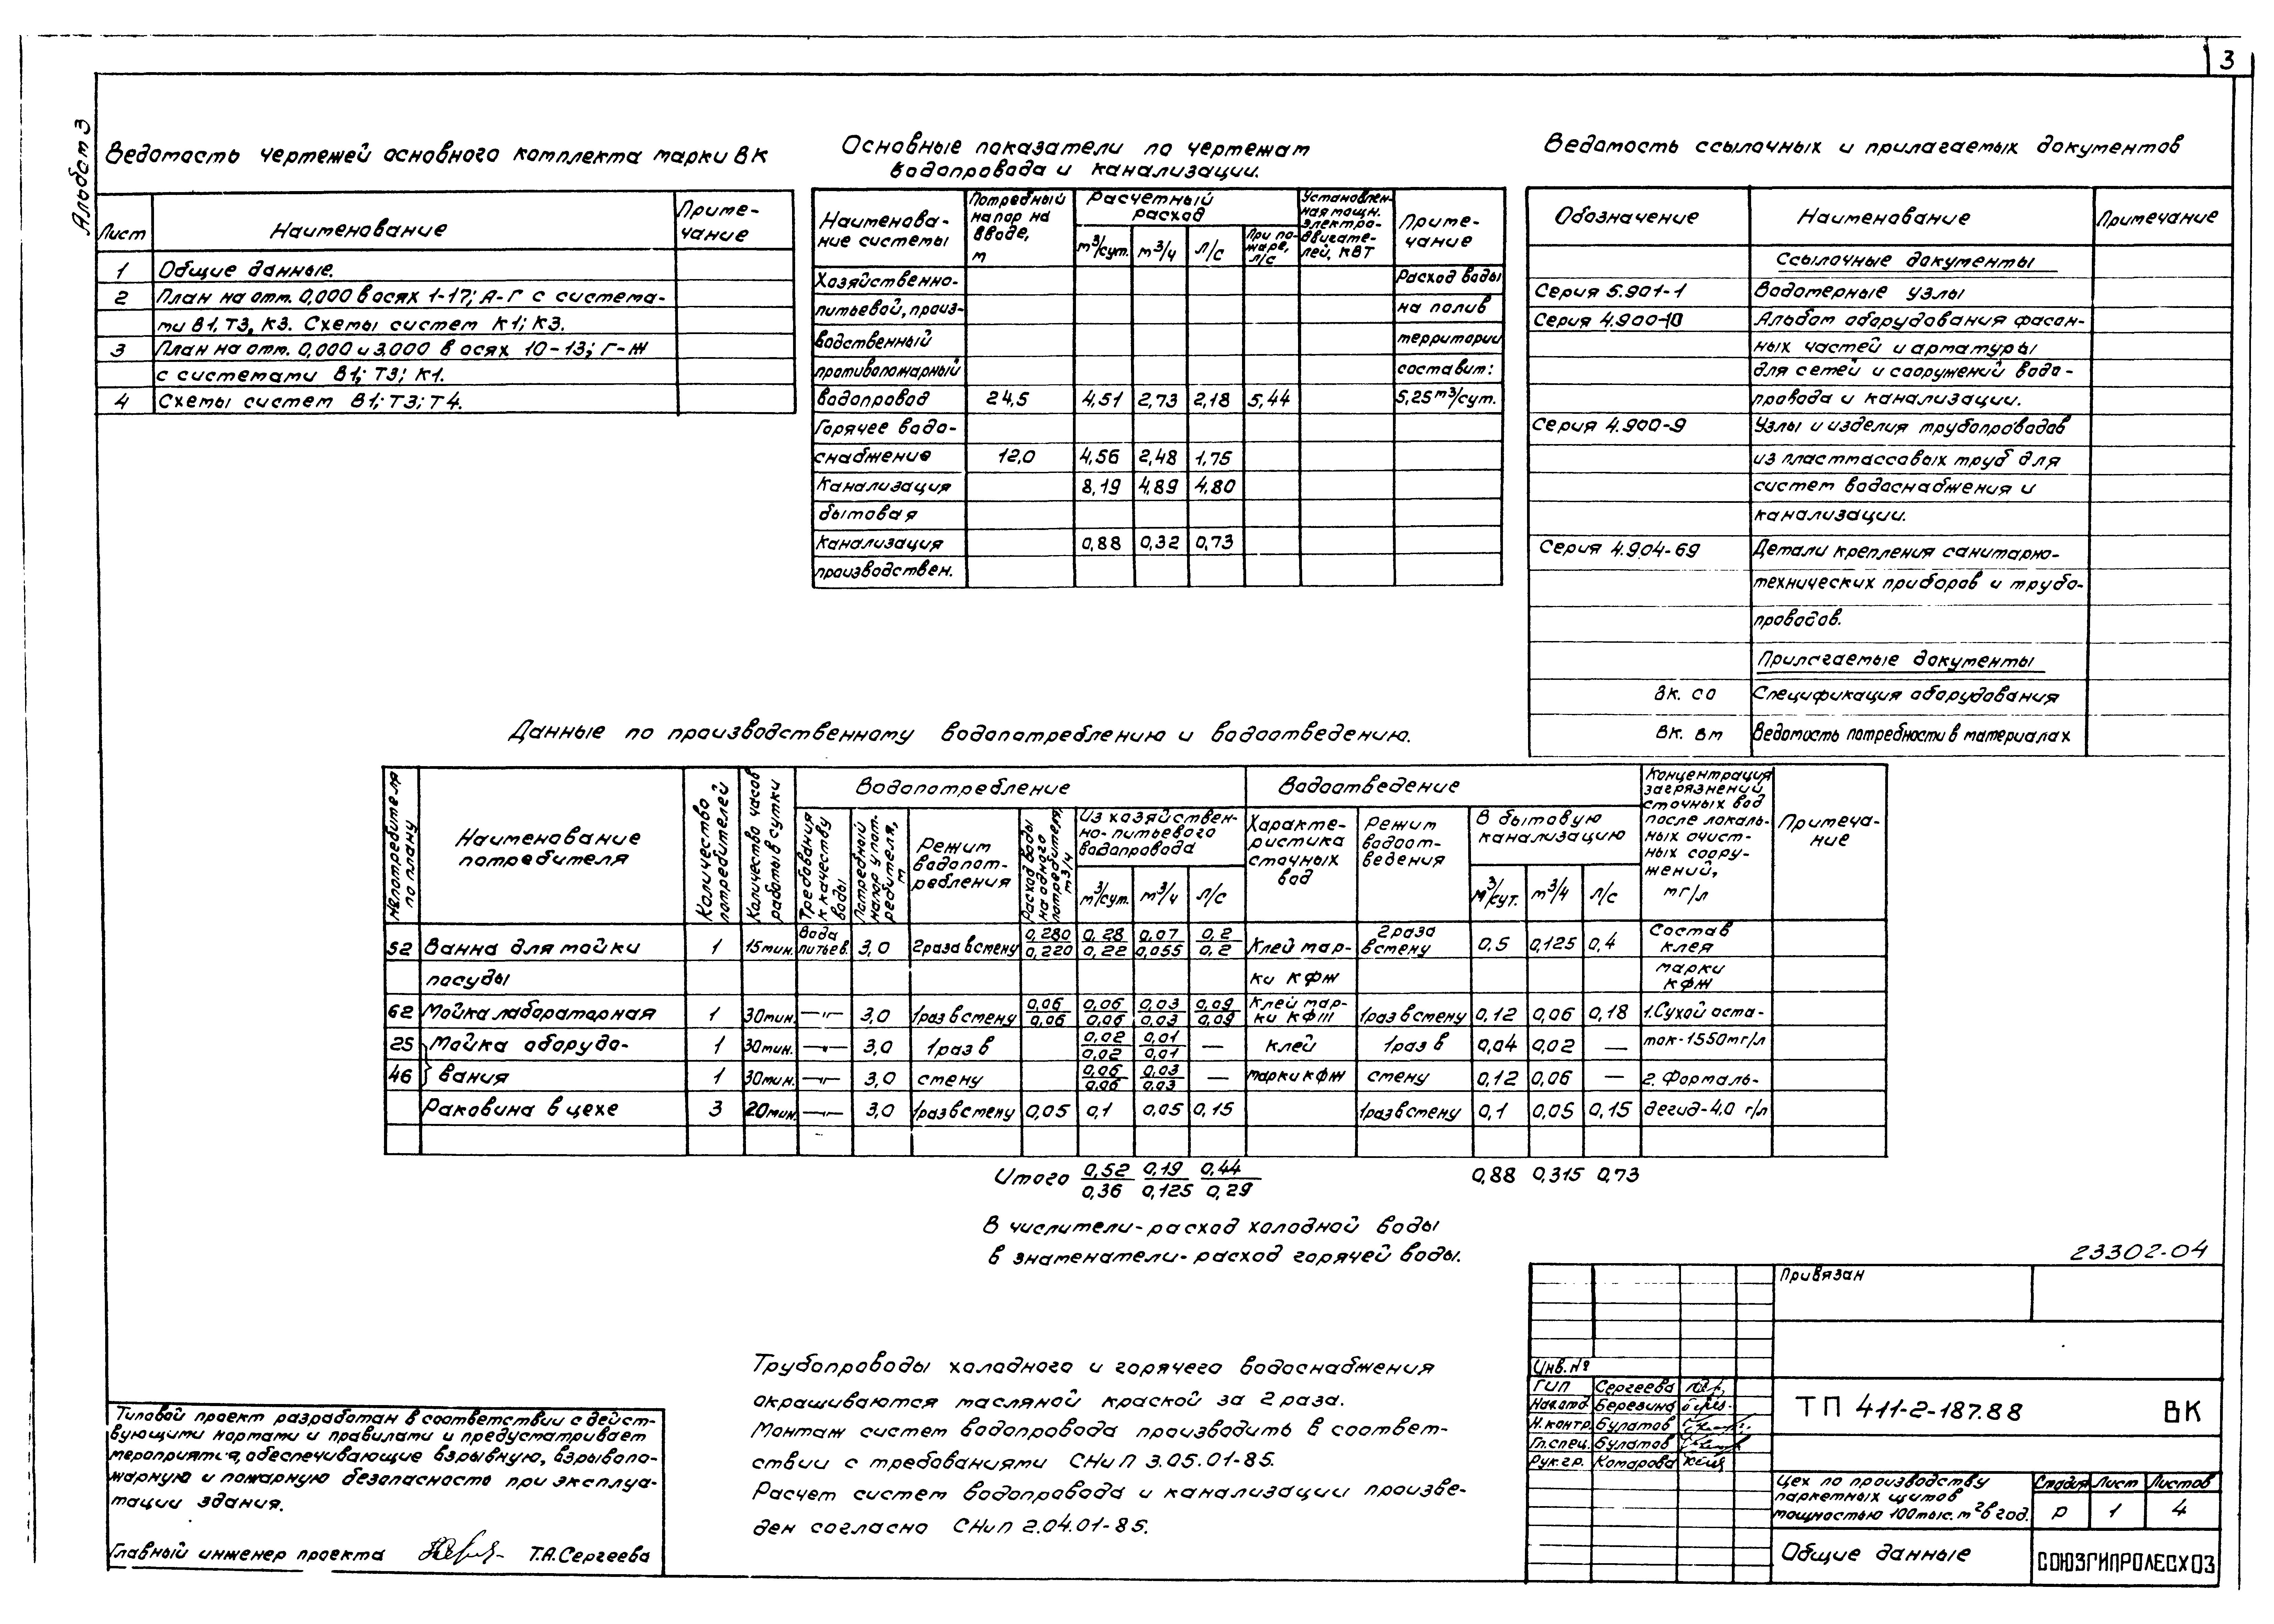 3
Альбом 3
Ведомость чертежей основного комплекта марки ВК
Лист Наименование Приме-
чание
1 Общие данные.
2 План на отм. 0,000 в осях 1-17; А-Г с система-
ми В1, Т3, К3. Схемы систем К1; К3.
3 План на отм. 0,000 и 3.000 в осях 10-13; Г-Ж
с системами В1; Т3; К1.
4 Схемы систем В1; Т3; Т4.
Основные показатели по чертежам
водопровода и канализации.
Наименова-
ние системы
Потребный
напор на
вводе,
м
Расчетный
расход
м³/сут. м³/ч л/с
При по-
жаре,
л/с
Установлен-
ная мощн.
электро-
двигате-
лей, кВт
Приме-
чание
Хозяйственно- Расход воды
питьевой, произ- на полив
водственный территории
противопожарный составит:
водопровод 24,5 4,51 2,73 2,18 5,44 5,25 м³/сут.
Горячее водо-
снабжение 12,0 4,56 2,48 1,75
Канализация 8,19 4,89 4,80
бытовая
канализация 0,88 0,32 0,73
производствен.
Ведомость ссылочных и прилагаемых документов
Обозначение Наименование Примечание
Ссылочные документы
Серия 5.901-1 Водомерные узлы
Серия 4.900-10 Альбом оборудования фасон-
ных частей и арматуры
для сетей и сооружений водо-
провода и канализации.
Серия 4.900-9 Узлы и изделия трубопроводов
из пластмассовых труб для
систем водоснабжения и
канализации.
Серия 4.904-69 Детали крепления санитарно-
технических приборов и трубо-
проводов.
Прилагаемые документы
ВК. СО Спецификация оборудования
ВК. ВМ Ведомость потребности в материалах
Данные по производственному водопотреблению и водоотведению.
№ потребителя
по плану
Наименование
потребителя
Количество
потребителей
Количество часов
работы в сутки
Водопотребление
Требования
к качеству
воды
Потребный
напор у пот-
ребителя,
м
Режим
водопот-
ребления
Расход воды
на одного
потребителя,
м³/ч
Из хозяйствен-
но-питьевого
водопровода
м³/сут. м³/ч л/с
Водоотведение
Характе-
ристика
сточных
вод
Режим
водоот-
ведения
В бытовую
канализацию
м³/сут. м³/ч л/с
Концентрация
загрязнений
сточных вод
после локаль-
ных очист-
ных соору-
жений,
мг/л
Примеча-
ние
52 Ванна для мойки 1 15мин. Вода питьев. 3,0 2 раза в смену 0,280/0,220 0,28/0,22 0,07/0,055 0,2/0,2 Клей мар- 2 раза в смену 0,5 0,125 0,4 Состав клея
посуды ки КФЖ марки КФЖ
62 Мойка лабораторная 1 30мин. —"— 3,0 1 раз в смену 0,06/0,06 0,06/0,06 0,03/0,03 0,09/0,09 Клей мар-ки КФЖ 1 раз в смену 0,12 0,06 0,18 1. Сухой оста-
25 Мойка оборудо- 1 30мин. —"— 3,0 1 раз в 0,02/0,02 0,01/0,01 — клей 1 раз в 0,04 0,02 — ток-1550мг/л
46 вания 1 30мин. —"— 3,0 смену 0,06/0,06 0,03/0,03 — марки КФЖ смену 0,12 0,06 — 2. Формаль-
Раковина в цехе 3 20мин. —"— 3,0 1 раз в смену 0,05 0,1 0,05 0,15 1 раз в смену 0,1 0,05 0,15 дегид-4,0 г/л
Итого 0,52/0,36 0,19/0,125 0,44/0,29 0,88 0,315 0,73
В числители-расход холодной воды
в знаменатели-расход горячей воды.
Трубопроводы холодного и горячего водоснабжения
окрашиваются масляной краской за 2 раза.
Монтаж систем водопровода производить в соответ-
ствии с требованиями СНиП 3.05.01-85.
Расчет систем водопровода и канализации произве-
ден согласно СНиП 2.04.01-85.
Типовой проект разработан в соответствии с дейст-
вующими нормами и правилами и предусматривает
мероприятия, обеспечивающие взрывную, взрывопо-
жарную и пожарную безопасность при эксплуа-
тации здания.
Главный инженер проекта Т.А. Сергеева
23302-04
Привязан
Инв. №
ГИП Сергеева
Нач.отд Березина
Н.контр. Булатов
Гл.спец. Булатов
Рук.гр. Комарова
ТП 411-2-187.88 ВК
Цех по производству
паркетных щитов
мощностью 100тыс. м² в год.
Стадия Лист Листов
Р 1 4
Общие данные
СОЮЗГИПРОЛЕСХОЗ